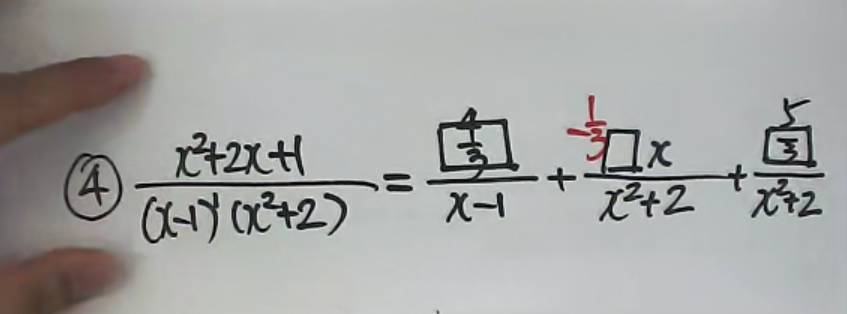 ④ x²+2x+1 / (x-1)¹(x²+2) = 4/3 / x-1 + -1/3 □x / x²+2 + 5/3 / x²+2